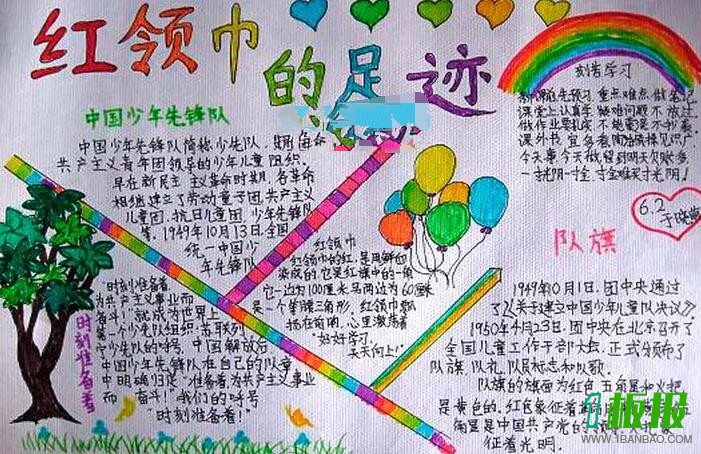 红领巾
的足迹
中国少年先锋队
中国少年先锋队简称少先队,
共产主义青年团领导的少年儿童组织.
早在新民主主义革命时期,各革命
相继建立了劳动童子团,共产主义
儿童团,抗日儿童团,少年先锋队
等.1949年10月13日全国
统一中国少
年先锋队
刻苦学习
新课前先预习,重点难点做笔记
课堂上认真学,疑难问题不放过
做作业要认定,不能
课外书
今天事今天做
一寸光阴一寸金,寸金难买寸光阴!
6.2
队旗
1949年10月1日.团中央通过
了《关于建立中国少年儿童队决议》.
1950年4月23日.团中央在北京召开了
全国儿童工作干部大会.正式颁布了
队旗,队礼,队员标志和队歌.
队旗的旗面为红色,五角星和火把
是黄色的,红色象征着
角星是中国共产党的
征着光明.
红领巾
红领巾的红,是用鲜血
染成的,它是红旗中的一角
它一边为100厘米另两边为60厘米
是一个等腰三角形,红领巾飘
扬在前胸,心里激荡着
"好好学习.
天天向上!"
时刻准备着
"时刻准备着,
为共产主义事业而
奋斗!"就成为世界上
第一个少先队组织:苏联列
宁少先队的呼号.中国解放后
中国少年先锋队在自己的队章
中明确归定"准备着为共产主义事业
而奋斗!"我们的呼号
"时刻准备着!"
1板报
WWW.1BANBAO.COM